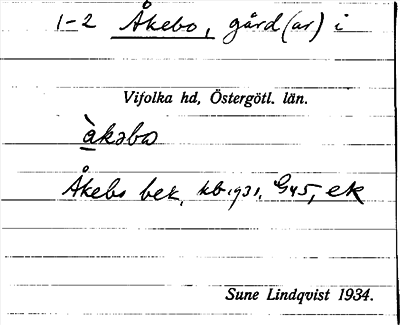 1-2 Åkebo, gård(ar) i
Vifolka hd, Östergötl. län.
àkəbω
Åkebo bek. kb. 1931. G45, ek
Sune Lindqvist 1934.